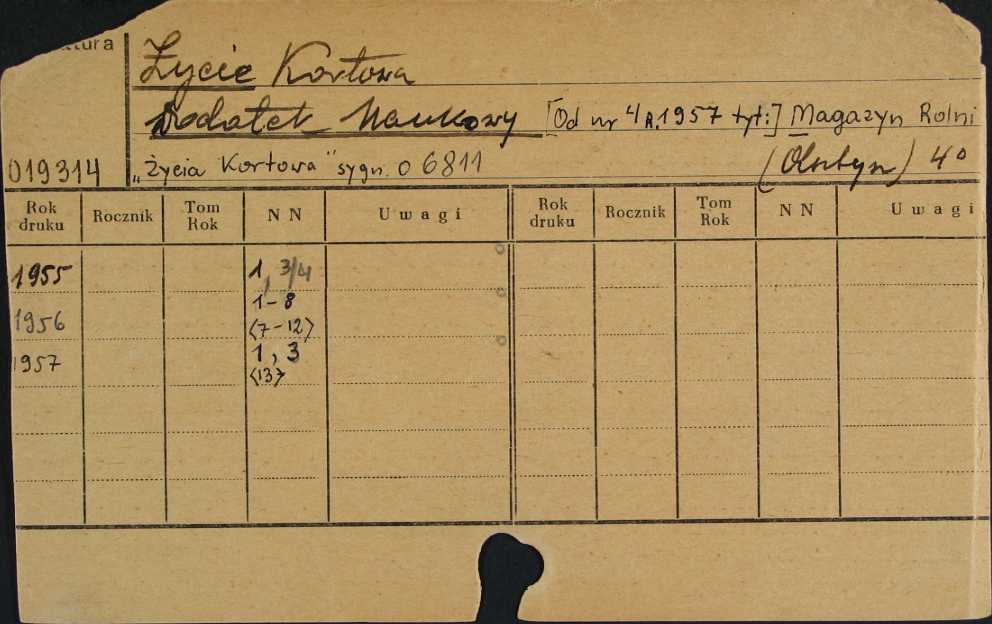 Życie Kortowa
Dodatek Naukowy [Od nr 4 R.1957 tyt:] Magazyn Rolni
019314 „Życia Kortowa" sygn. 0 6811 (Olsztyn) 4°
Rok druku Rocznik Tom Rok NN Uwagi Rok druku Rocznik Tom Rok NN Uwagi
1955 1, 3/4
1956 1-8
⟨7-12⟩
1957 1, 3
⟨13⟩